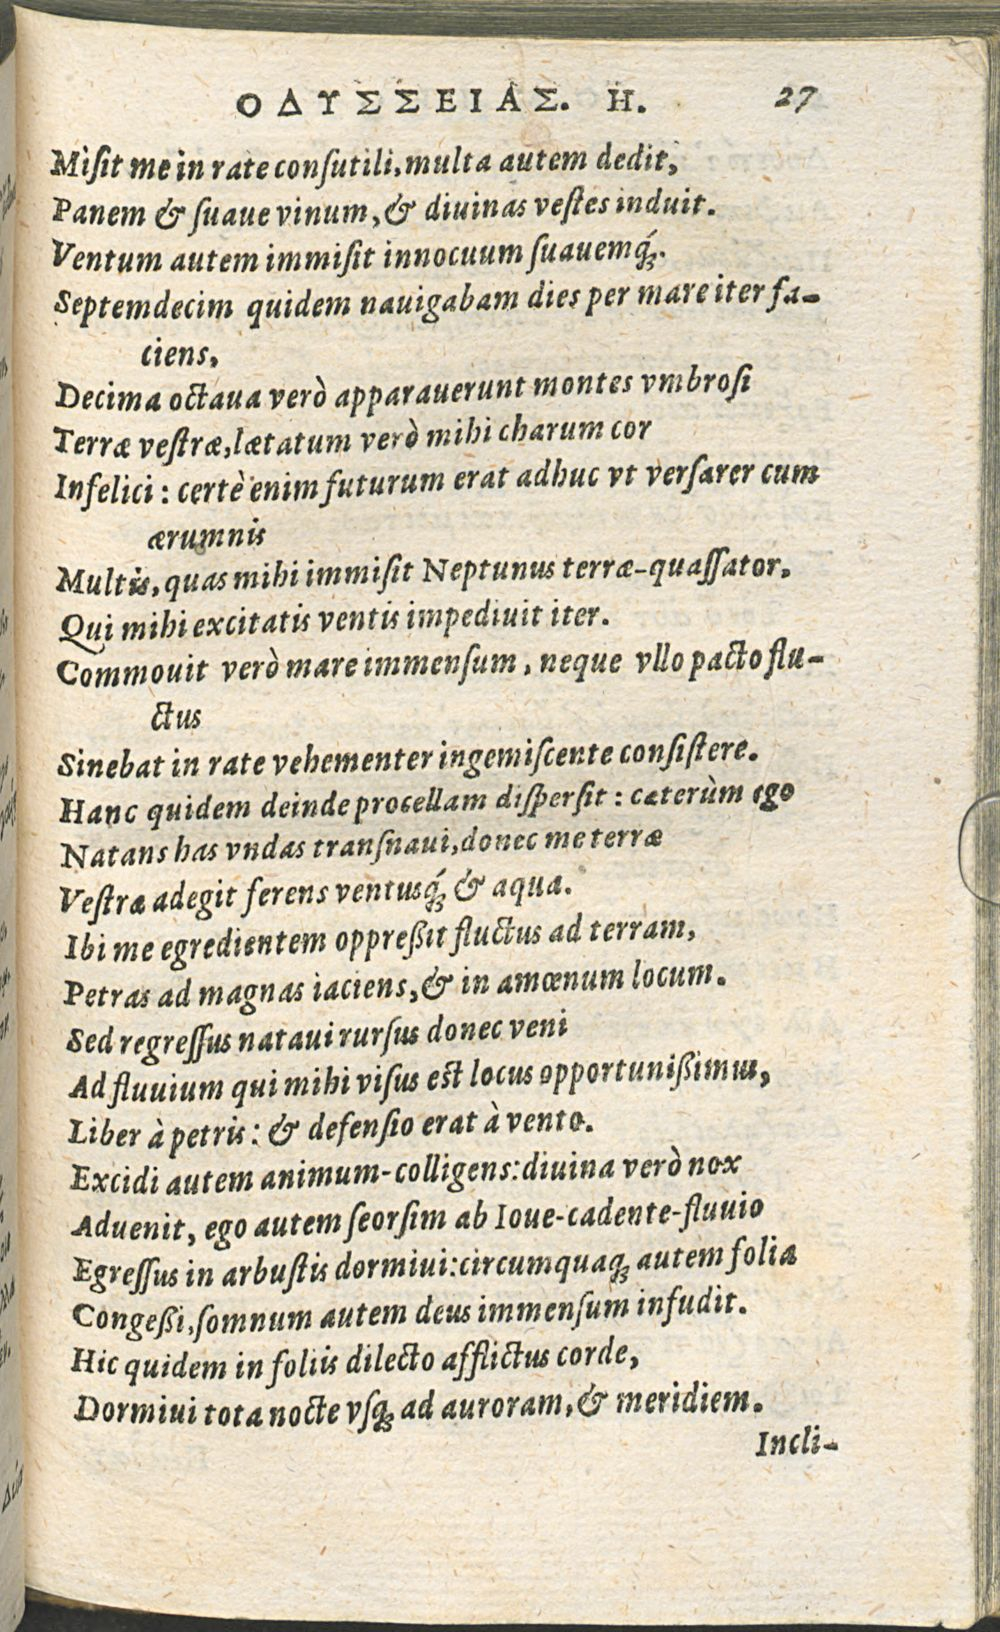 ΟΔΥΣΣΕΙΑΣ. Η. 27
Misit me in rate consutili, multa autem dedit,
Panem & suaue vinum, & diuinas vestes induit.
Ventum autem immisit innocuum suauemq́;.
Septemdecim quidem nauigabam dies per mare iter fa-
ciens,
Decima octaua verò apparauerunt montes vmbrosi
Terræ vestræ, lætatum verò mihi charum cor
Infelici: certè enim futurum erat adhuc vt versarer cum
ærumnis
Multis, quas mihi immisit Neptunus terræ-quassator.
Qui mihi excitatis ventis impediuit iter.
Commouit verò mare immensum, neque vllo pacto flu-
ctus
Sinebat in rate vehementer ingemiscente consistere.
Hanc quidem deinde procellam dispersit: cæterùm ego
Natans has vndas transnaui, donec me terræ
Vestræ adegit ferens ventusq́; & aqua.
Ibi me egredientem oppreßit fluctus ad terram,
Petras ad magnas iaciens, & in amœnum locum.
Sed regressus nataui rursus donec veni
Ad fluuium qui mihi visus est locus opportunißimus,
Liber à petris: & defensio erat à vento.
Excidi autem animum-colligens: diuina verò nox
Aduenit, ego autem seorsim ab Ioue-cadente-fluuio
Egressus in arbustis dormiui: circumquaq; autem folia
Congeßi, somnum autem deus immensum infudit.
Hic quidem in foliis dilecto afflictus corde,
Dormiui tota nocte vsq; ad auroram, & meridiem.
Incli-